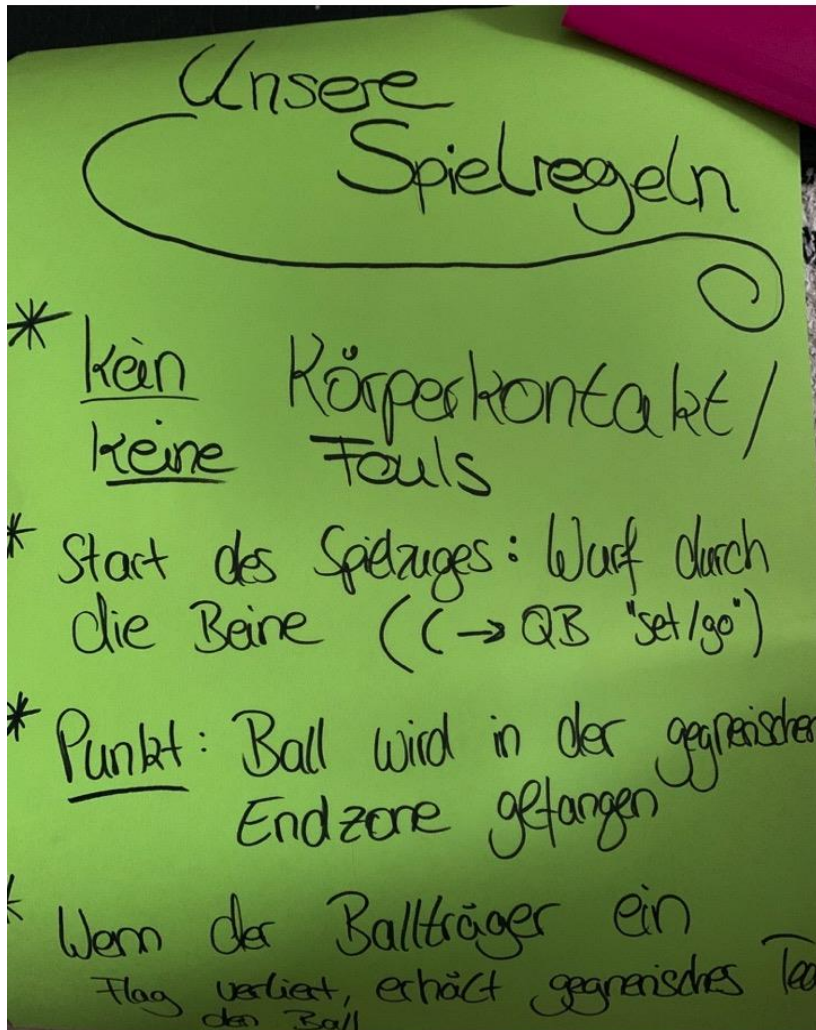 Unsere
Spielregeln
* kein Körperkontakt/
keine Fouls
* Start des Spielzuges: Wurf durch
die Beine ((→ QB "set/go")
* Punkt: Ball wird in der gegnerischen
Endzone gefangen
* Wenn der Ballträger ein
Flag verliert, erhält gegnerisches Tea
den Ball